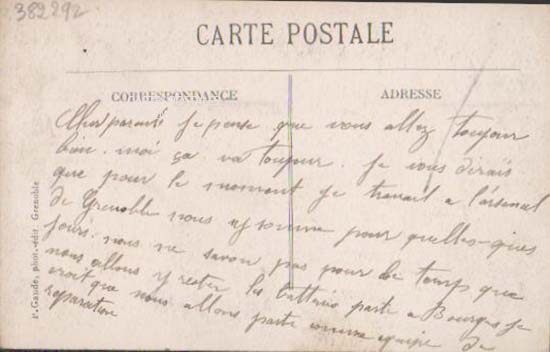 382292
CARTE POSTALE
CORRESPONDANCE
ADRESSE
Cher parents je pense que vous allez toujour
bien. moi ça va toujour. je vous dirais
que pour le moment je travail a l'arsenal
de Grenoble nous y somme pour quelles-ques
jours. nous ne savon pas pour de temps que
nous allons y rester les batterie parte a Bourges je
croit que nous allons parte comme equipe de
reparation
Gaude, phot.-édit. Grenoble